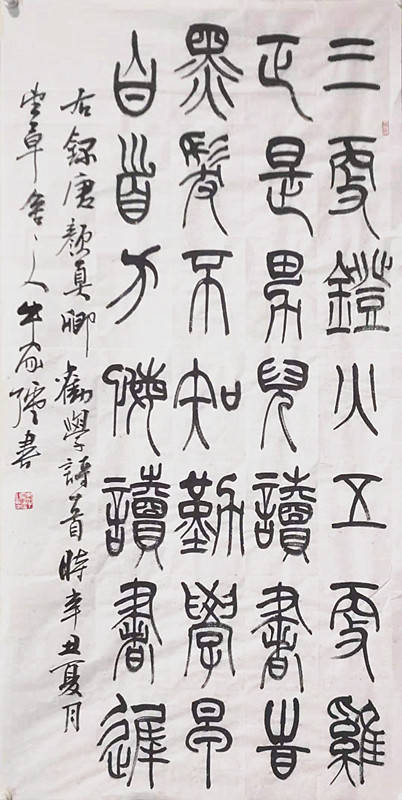 三更鐙火五更雞
正是男兒讀書旹
黑髮不知勤學早
白首方悔讀書遲
右錄唐顏真卿勸學詩一首時辛丑夏月
草舍人牛書